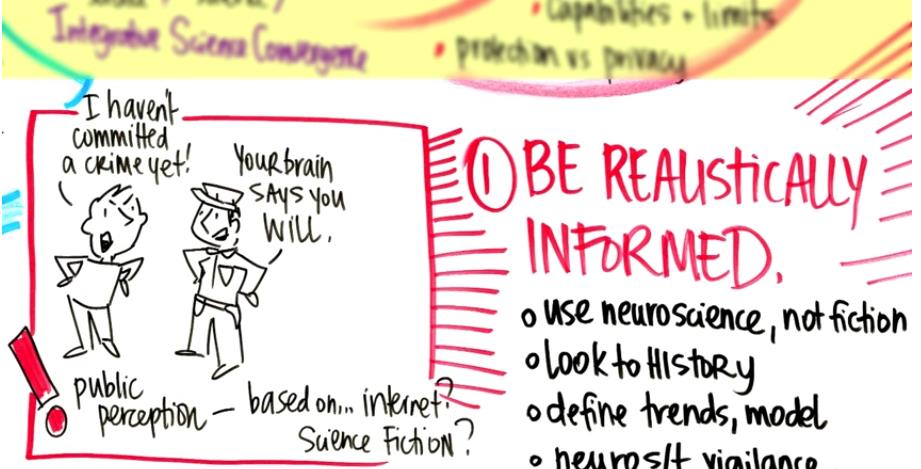 Integrative Science Convergence
• Capabilities + limits
• protection vs privacy
I haven't
committed
a crime yet!
Your brain
says you
will.
public
perception — based on... internet?
Science Fiction?
① BE REALISTICALLY
INFORMED.
o use neuroscience, not fiction
o look to HISTORY
o define trends, model
o neuros/t vigilance